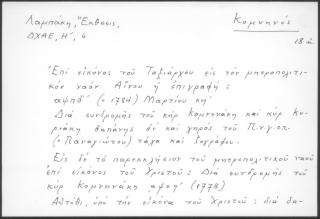 Λαμπάκη, Ἔκθεσις,
ΔΧΑΕ, Η΄, 6
Κομνηνός
18 α
Ἐπί εἰκόνος τοῦ Ταξιάρχου εἰς τόν μητροπολιτι-
κόν ναόν Αἴνου ἡ ἐπιγραφή:
αψπδ΄ (= 1784) Μαρτίου κη΄
Διά συνδρομῆς τοῦ κύρ Κομνηνάκη καί κύρ Κυ-
ριάκη δαπάνης δέ καί χειρός τοῦ Π.ν.γ.οτ.
(= Παναγιώτου) τάχα καί ζωγράφου.
Εἰς δέ τό παρεκκλήσιον τοῦ μητροπολιτικοῦ ναοῦ
ἐπί εἰκόνος τοῦ Χριστοῦ: Διά συνδρομῆς τοῦ
κύρ Κομνηνάκη αψοη΄ (1778)
Αὐτόθι, ὑπό τήν εἰκόνα τοῦ Χριστοῦ: διά δα-